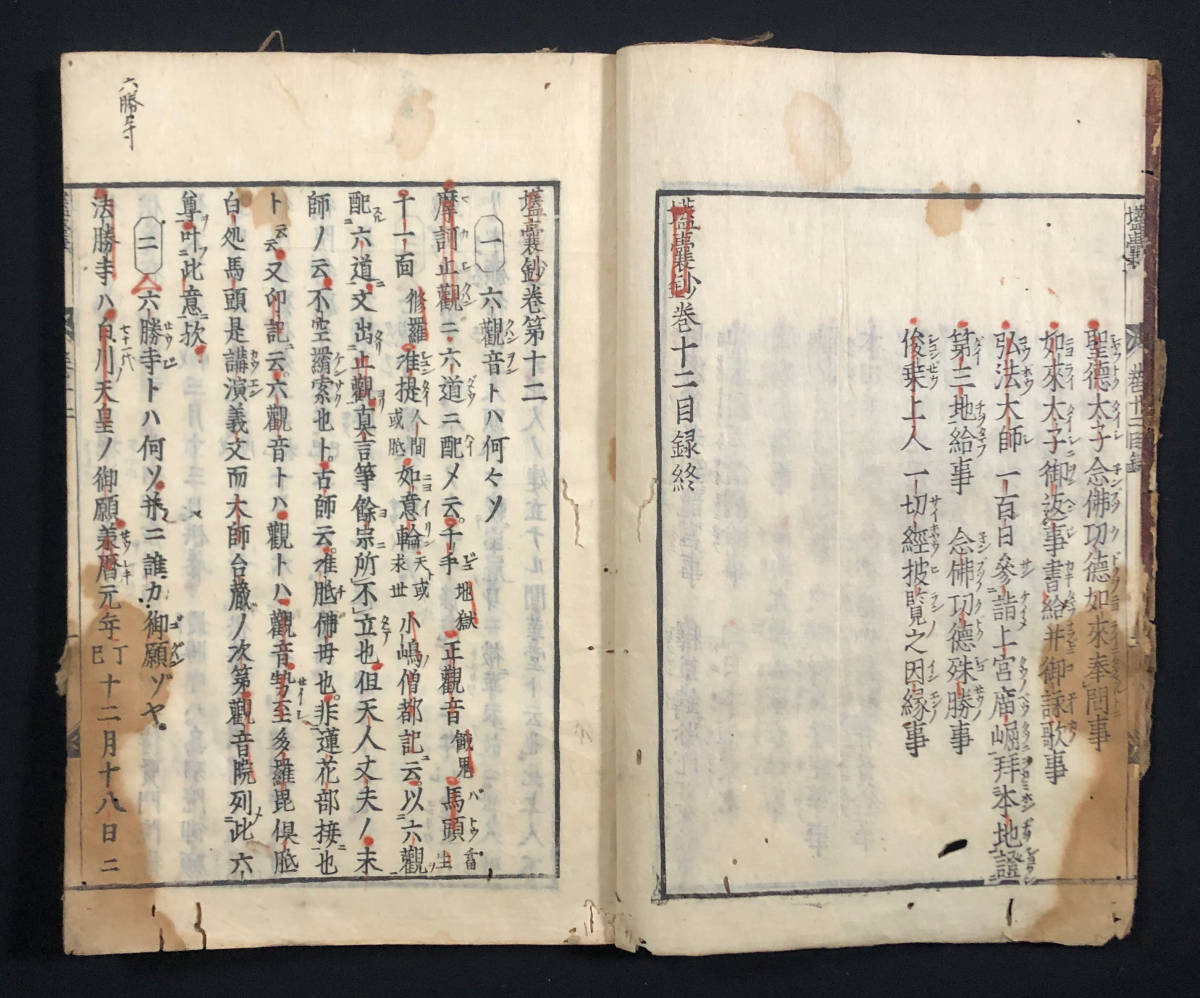 聖德太子念佛功德如來奉問事
如來太子御返事書給并御詠歌事
弘法大師一百日參詣上宮廟崛拜本地證
第三地給事 念佛功德殊勝事
俊乗上人一切經披覽之因縁事
壒囊鈔卷十二目録終
六勝寺
壒囊鈔卷第十二
一 六觀音トハ何々ソ
摩訶止觀ニ六道ニ配メ云千手地獄正觀音餓鬼馬頭畜生
十一面修羅准提人間或胝如意輪天或求世小嶋僧都記云以六觀
配六道文出止觀真言等餘宗所不立也但天人丈夫ノ末
師ノ云不空羂索也ト古師云准胝佛母也非蓮花部接也
ト云云又印記云六觀音トハ觀トハ觀音勢至多羅毘倶胝
白処馬頭是講演義文而大師台藏ノ次第觀音院列此六
尊叶此意欤
二 六勝寺トハ何ソ并ニ誰カ御願ゾヤ
法勝寺ハ白川天皇ノ御願兼暦元年丁巳十二月十八日ニ